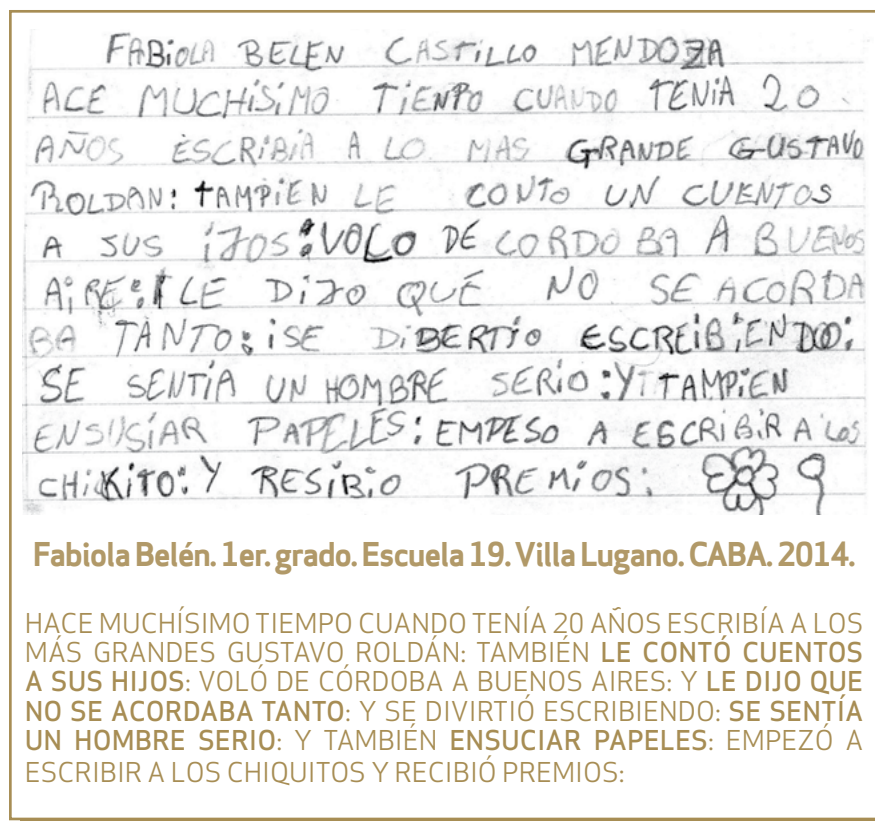 FABIOLA BELEN CASTILLO MENDOZA
ACE MUCHÍSIMO TIENPO CUANDO TENIA 20
AÑOS ESCRIBIA A LO MAS GRANDE GUSTAVO
ROLDAN: TAMPIEN LE CONTO UN CUENTOS
A SUS IJOS: VOLO DE CORDOBA A BUENOS
AIRE: I LE DIJO QUE NO SE ACORDA
BA TANTO: I SE DIBERTIO ESCREIBIENDO:
SE SENTÍA UN HOMBRE SERIO: Y TAMPIEN
ENSUSIAR PAPELES: EMPESO A ESCRIBIR A LOS
CHIKITO: Y RESIBIO PREMIOS:
Fabiola Belén. 1er. grado. Escuela 19. Villa Lugano. CABA. 2014.
HACE MUCHÍSIMO TIEMPO CUANDO TENÍA 20 AÑOS ESCRIBÍA A LOS
MÁS GRANDES GUSTAVO ROLDÁN: TAMBIÉN LE CONTÓ CUENTOS
A SUS HIJOS: VOLÓ DE CÓRDOBA A BUENOS AIRES: Y LE DIJO QUE
NO SE ACORDABA TANTO: Y SE DIVIRTIÓ ESCRIBIENDO: SE SENTÍA
UN HOMBRE SERIO: Y TAMBIÉN ENSUCIAR PAPELES: EMPEZÓ A
ESCRIBIR A LOS CHIQUITOS Y RECIBIÓ PREMIOS: